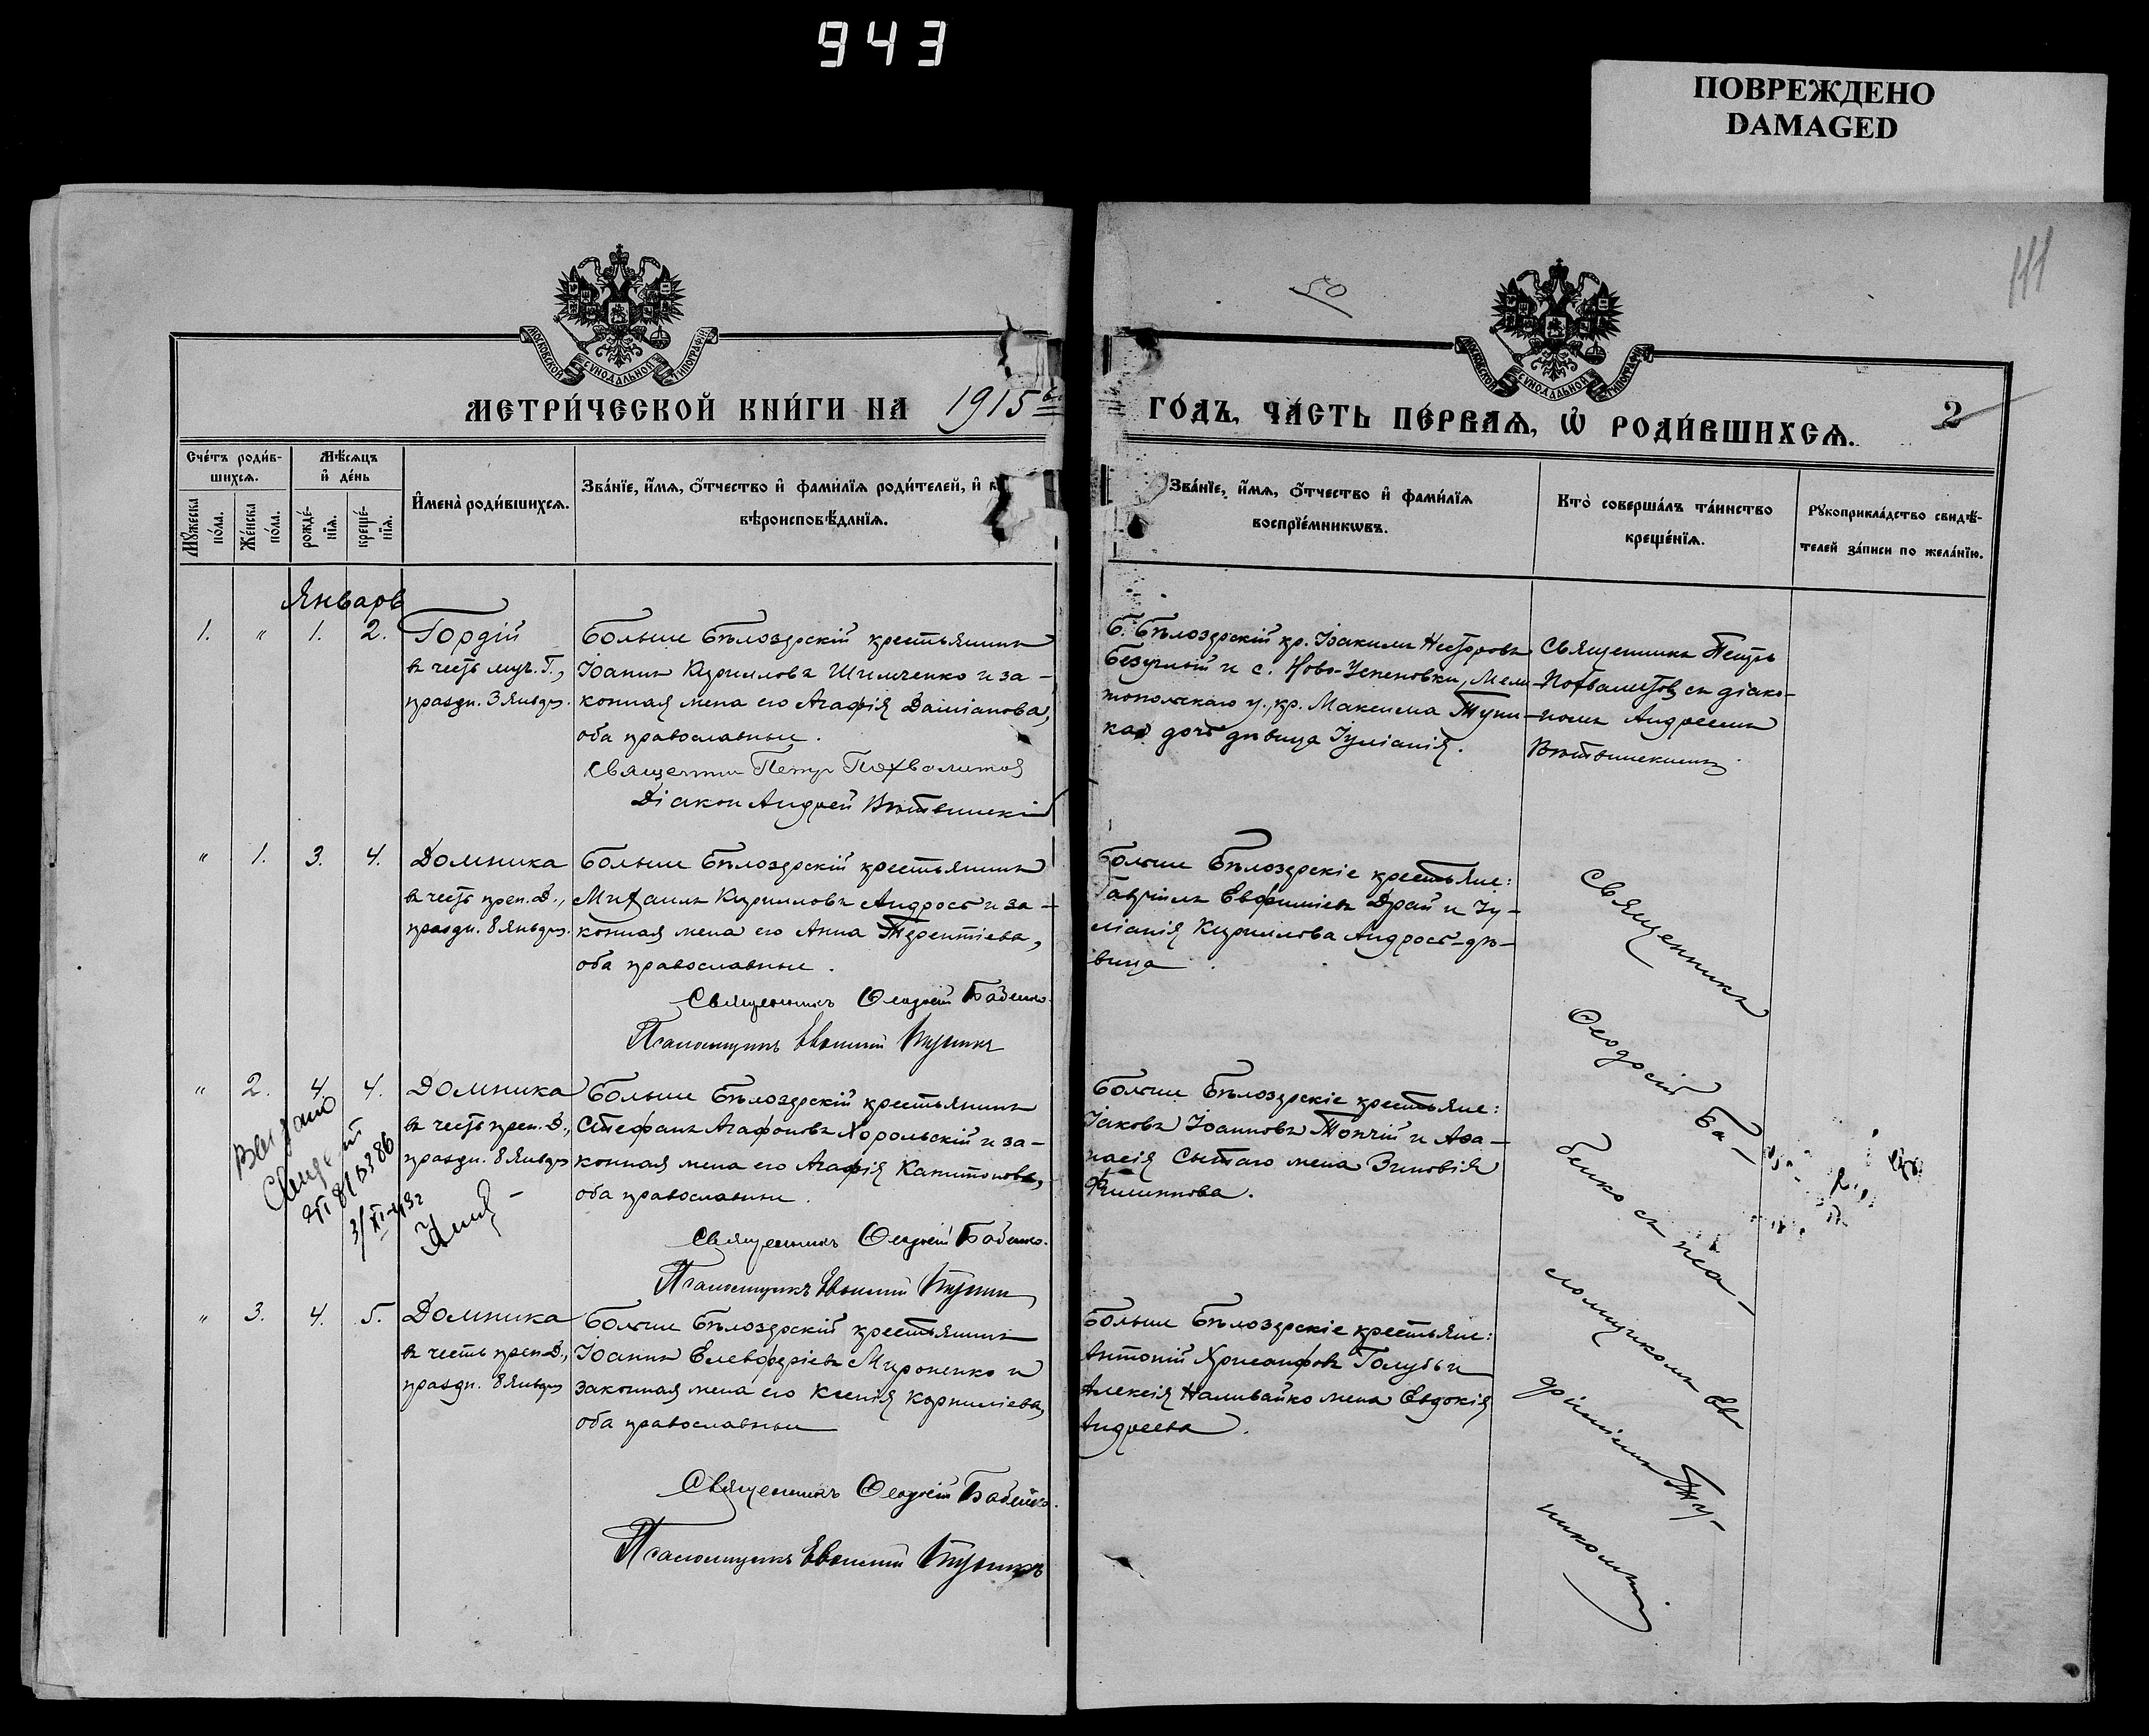 943
ПОВРЕЖДЕНО
DAMAGED
111
50
МОСКОВСКОЙ СѴНОДАЛЬНОЙ ТИПОГРАФІИ
МОСКОВСКОЙ СѴНОДАЛЬНОЙ ТИПОГРАФІИ
МЕТРИ́ЧЕСКОЙ КНИ́ГИ НА 1915
ГО́ДЪ, ЧА́СТЬ ПЕ́РВАѦ, Ѿ РОДИ́ВШИХСѦ. 2
Сче́тъ роди́в-
шихсѧ.
Му́жеска
по́ла.
Же́нска
по́ла.
Мѣ́сѧцъ
и҆ де́нь
рожде́-
нїѧ.
креще́-
нїѧ.
И҆мена̀ роди́вшихсѧ.
Зва́нїе, и҆́мѧ, ѻ҆́тчество и҆ фами́лїѧ роди́телей, и҆ к
вѣроисповѣ́данїѧ.
Зва́нїе, и҆́мѧ, ѻ҆́тчество и҆ фами́лїѧ
воспрїе́мникѡвъ.
Кто̀ соверша́лъ та́инство
креще́нїѧ.
Рукоприкла́дство свидѣ́-
телей за́писи по жела́нїю.
Январь
1. " 1. 2.
Гордій
въ честь муч. Г.,
праздн. 3 Января.
Больше Бѣлозерскій крестьянинъ
Іоаннъ Кирилловъ Шимченко и за-
конная жена его Агафія Даміанова,
оба православные.
Священник Петр Похвалитов
Діакон Андрей Вѣтвинскій
Б. Бѣлозерскій кр. Іоакимъ Несторовъ
Безуглый и с. Ново-Успеновки, Мели-
топольскаго у., кр. Максима Тупи-
ка дочь дѣвица Іуліанія.
Священникъ Петръ
Похвалитовъ съ діако-
номъ Андреемъ
Вѣтвинскимъ
" 1. 3. 4.
Домника
въ честь преп. Д.,
праздн. 8 Января.
Больше Бѣлозерскій крестьянинъ
Михаилъ Кирилловъ Андрость и за-
конная жена его Анна Терентіева,
оба православные.
Священникъ Ѳеодосій Бабенко.
Псаломщикъ Евфимій Тупикъ
Больше Бѣлозерскіе крестьяне:
Гавріилъ Евфиміевъ Драй и Іу-
ліанія Кириллова Андрость-дѣ-
вица
" 2. 4. 4.
Домника
въ честь преп. Д.,
праздн. 8 Января
Больше Бѣлозерскій крестьянинъ
Стефанъ Агафоновъ Хорольскій и за-
конная жена его Агафія Капитонова,
оба православные.
Священникъ Ѳеодосій Бабенко.
Псаломщикъ Евфимій Тупикъ
Больше Бѣлозерскіе крестьяне:
Іаковъ Іоанновъ Топчій и Аѳа-
насія Сытаго жена Зиновія
Филиппова.
" 3. 4. 5.
Домника
въ честь преп. Д.,
праздн. 8 Января
Больше Бѣлозерскій крестьянинъ
Іоаннъ Елевферіевъ Мироненко и
законная жена его Ксенія Корниліева,
оба православные
Священникъ Ѳеодосій Бабенко.
Псаломщикъ Евфимій Тупикъ
Больше Бѣлозерскіе крестьяне:
Антоній Хрисанфовъ Голубъ и
Алексія Наливайко жена Евдокія
Андреева.
Священникъ
Ѳеодосій Ба-
бенко съ пса-
ломщикомъ Ев-
фиміемъ Ту-
пикомъ